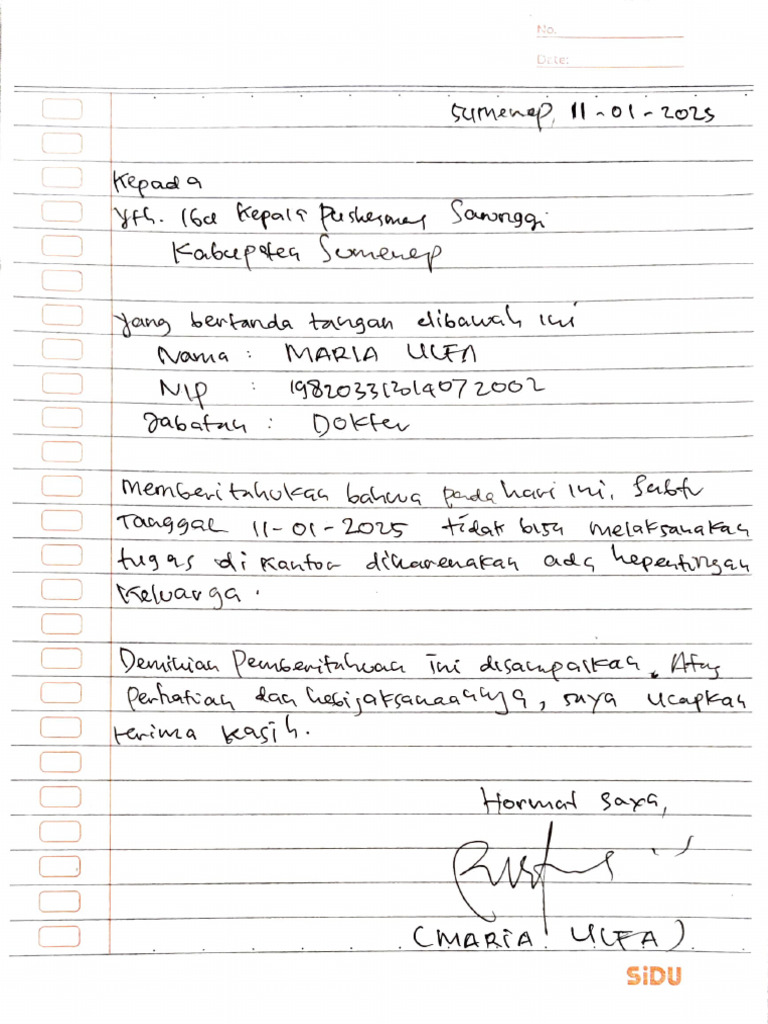 No.
Date:
Sumenep, 11-01-2025
Kepada
Yth. Ibu Kepala Puskesmas Saronggi
Kabupaten Sumenep
Yang bertanda tangan dibawah ini
Nama : MARIA ULFA
NIP : 198203312014072002
Jabatan : Dokter
Memberitahukan bahwa pada hari ini, Sabtu
Tanggal 11-01-2025 tidak bisa melaksanakan
tugas di kantor dikarenakan ada kepentingan
keluarga.
Demikian Pemberitahuan ini disampaikan. Atas
perhatian dan kebijaksanaannya, saya ucapkan
terima kasih.
Hormat saya,
(MARIA ULFA)
SiDU